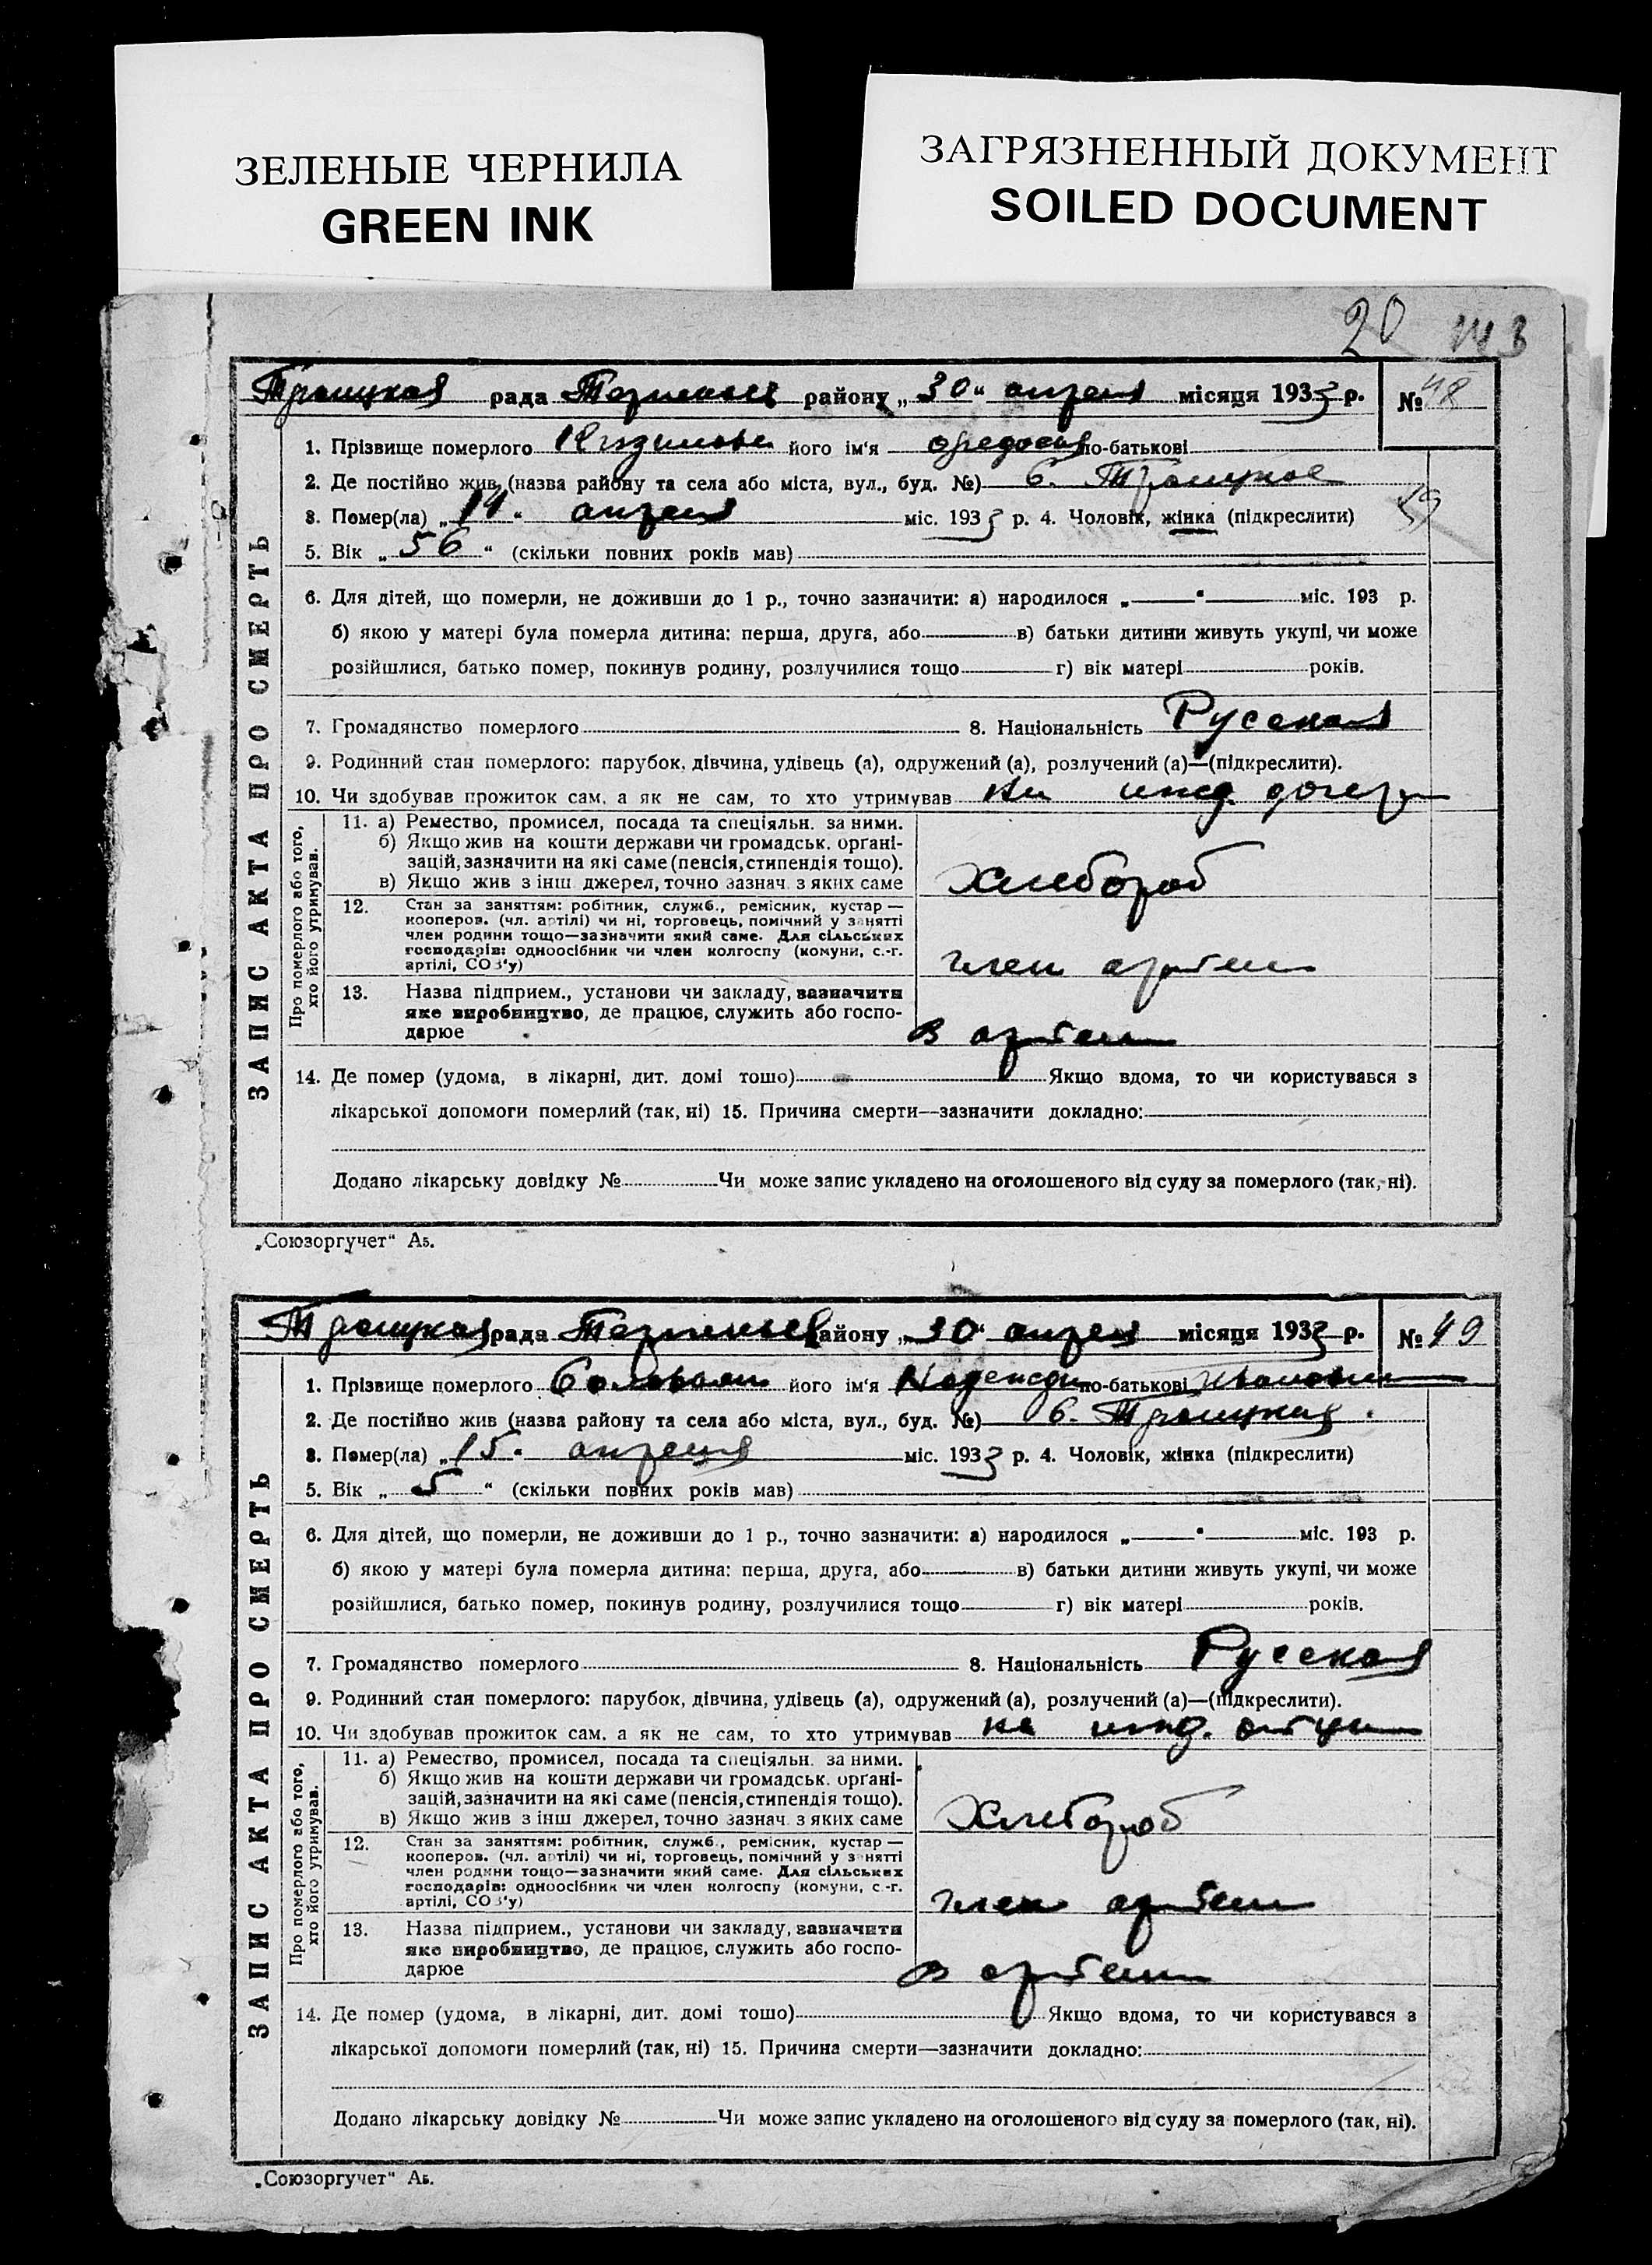 ЗЕЛЕНЫЕ ЧЕРНИЛА
GREEN INK
ЗАГРЯЗНЕННЫЙ ДОКУМЕНТ
SOILED DOCUMENT
20 143
Троицкая рада района „30“ апреля місяця 1933 р. № 48
1. Прізвище померлого його ім‘я по-батькові
2. Де постійно жив (назва району та села або міста, вул., буд. №) с. Троицкое
3. Помер(ла) „14“ апреля міс. 1933 р. 4. Чоловік, жінка (підкреслити)
5. Вік „56“ (скільки повних років мав)
6. Для дітей, що померли, не доживши до 1 р., точно зазначити: а) народилося „—“ міс. 193 р.
б) якою у матері була померла дитина: перша, друга, або в) батьки дитини живуть укупі, чи може
розійшлися, батько помер, покинув родину, розлучилися тощо г) вік матері років.
7. Громадянство померлого 8. Національність Русская
9. Родинний стан померлого: парубок, дівчина, удівець (а), одружений (а), розлучений (а)—(підкреслити).
10. Чи здобував прожиток сам, а як не сам, то хто утримував на ижд. дочери
11. а) Ремество, промисел, посада та спеціяльн. за ними.
б) Якщо жив на кошти держави чи громадськ. орґані-
зацій, зазначити на які саме (пенсія, стипендія тощо).
в) Якщо жив з інш джерел, точно зазнач. з яких саме
Хлебороб
12. Стан за заняттям: робітник, служб., ремісник, кустар —
кооперов. (чл. артілі) чи ні, торговець, помічний у занятті
член родини тощо—зазначити який саме. Для сільських
господарів: одноосібник чи член колгоспу (комуни, с.-г.
артілі, СОЗ‘у)
член артели
13. Назва підприєм., установи чи закладу, зазначити
яке виробництво, де працює, служить або госпо-
дарює
в артели
14. Де помер (удома, в лікарні, дит. домі тошо) Якщо вдома, то чи користувався з
лікарської допомоги померлий (так, ні) 15. Причина смерти—зазначити докладно:
Додано лікарську довідку № Чи може запис укладено на оголошеного від суду за померлого (так, ні).
ЗАПИС АКТА ПРО СМЕРТЬ
Про померлого або того,
хто його утримував.
„Союзоргучет“ А5.
Троицкая рада району „30“ апреля місяця 1933 р. № 49
1. Прізвище померлого його ім‘я Надежда по-батькові Ивановна
2. Де постійно жив (назва району та села або міста, вул., буд. №) с. Троицкая
3. Помер(ла) „15“ апреля міс. 1933 р. 4. Чоловік, жінка (підкреслити)
5. Вік „5“ (скільки повних років мав)
6. Для дітей, що померли, не доживши до 1 р., точно зазначити: а) народилося „—“ міс. 193 р.
б) якою у матері була померла дитина: перша, друга, або в) батьки дитини живуть укупі, чи може
розійшлися, батько помер, покинув родину, розлучилися тощо г) вік матері років.
7. Громадянство померлого 8. Національність Русская
9. Родинний стан померлого: парубок, дівчина, удівець (а), одружений (а), розлучений (а)—(підкреслити).
10. Чи здобував прожиток сам, а як не сам, то хто утримував на ижд. отца
11. а) Ремество, промисел, посада та спеціяльн. за ними.
б) Якщо жив на кошти держави чи громадськ. орґані-
зацій, зазначити на які саме (пенсія, стипендія тощо).
в) Якщо жив з інш джерел, точно зазнач. з яких саме
Хлебороб
12. Стан за заняттям: робітник, служб., ремісник, кустар —
кооперов. (чл. артілі) чи ні, торговець, помічний у занятті
член родини тощо—зазначити який саме. Для сільських
господарів: одноосібник чи член колгоспу (комуни, с.-г.
артілі, СОЗ‘у)
член артели
13. Назва підприєм., установи чи закладу, зазначити
яке виробництво, де працює, служить або госпо-
дарює
в артели
14. Де помер (удома, в лікарні, дит. домі тошо) Якщо вдома, то чи користувався з
лікарської допомоги померлий (так, ні) 15. Причина смерти—зазначити докладно:
Додано лікарську довідку № Чи може запис укладено на оголошеного від суду за померлого (так, ні).
ЗАПИС АКТА ПРО СМЕРТЬ
Про померлого або того,
хто його утримував.
„Союзоргучет“ А5.